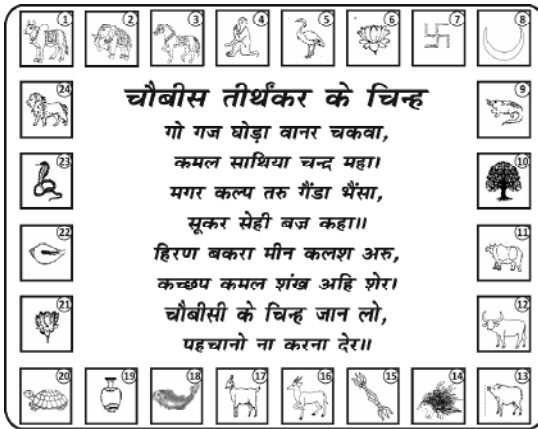 ① ② ③ ④ ⑤ ⑥ ⑦ ⑧
㉔ ⑨
चौबीस तीर्थंकर के चिन्ह
गो गज घोड़ा वानर चकवा,
कमल साथिया चन्द्र महा।
㉓ ⑩
मगर कल्प तरु गैंडा भैंसा,
सूकर सेही बज्र कहा॥
㉒ ⑪
हिरण बकरा मीन कलश अरु,
कच्छप कमल शंख अहि शेर।
㉑ ⑫
चौबीसी के चिन्ह जान लो,
पहचानो ना करना देर॥
⑳ ⑲ ⑱ ⑰ ⑯ ⑮ ⑭ ⑬